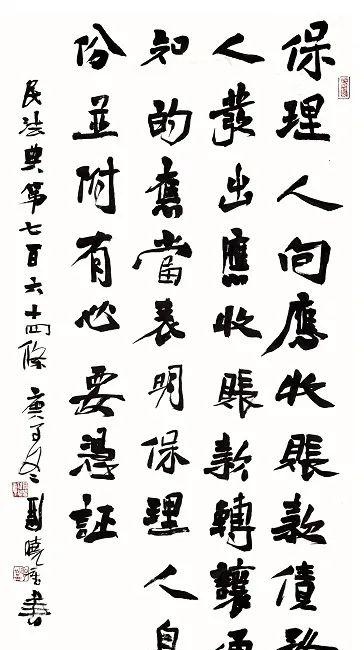 保理人向應收賬款債務
人發出應收賬款轉讓
知的應當表明保理人
份並附有必要憑証
民法典第七百六十四條 庚子冬 劉曉書